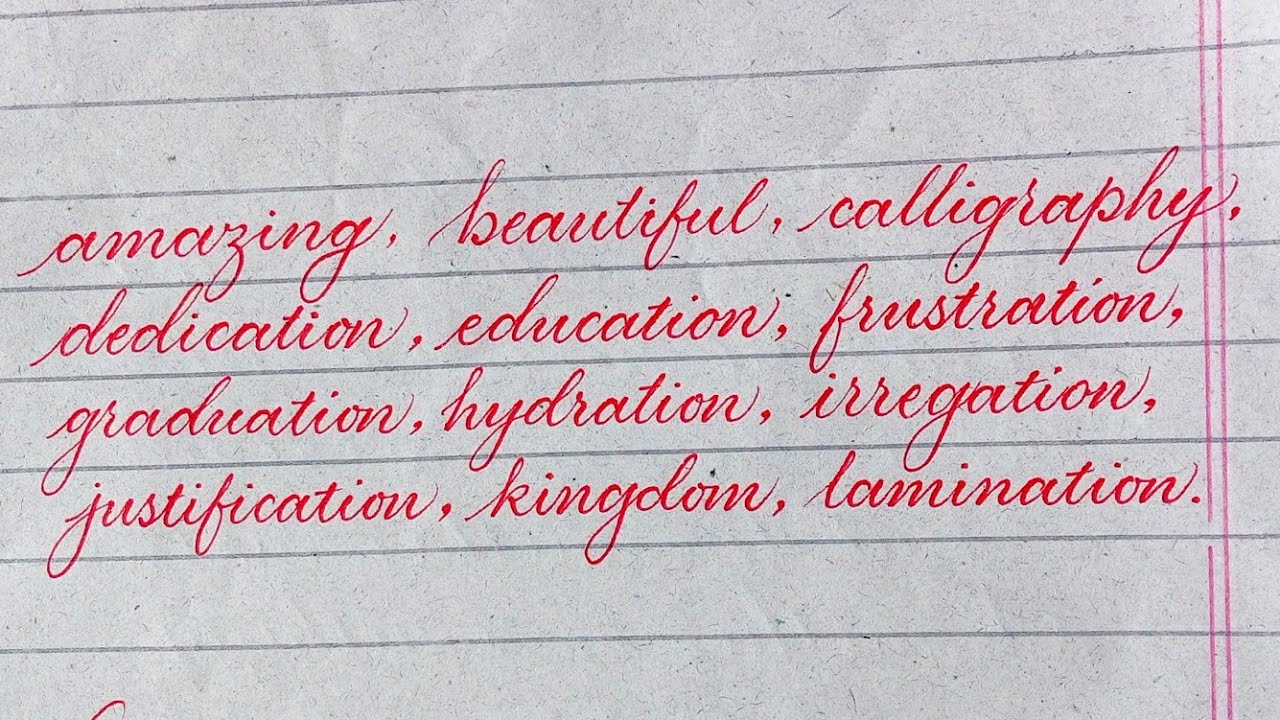 amazing, beautiful, calligraphy,
dedication, education, frustration,
graduation, hydration, irregation,
justification, kingdom, lamination.